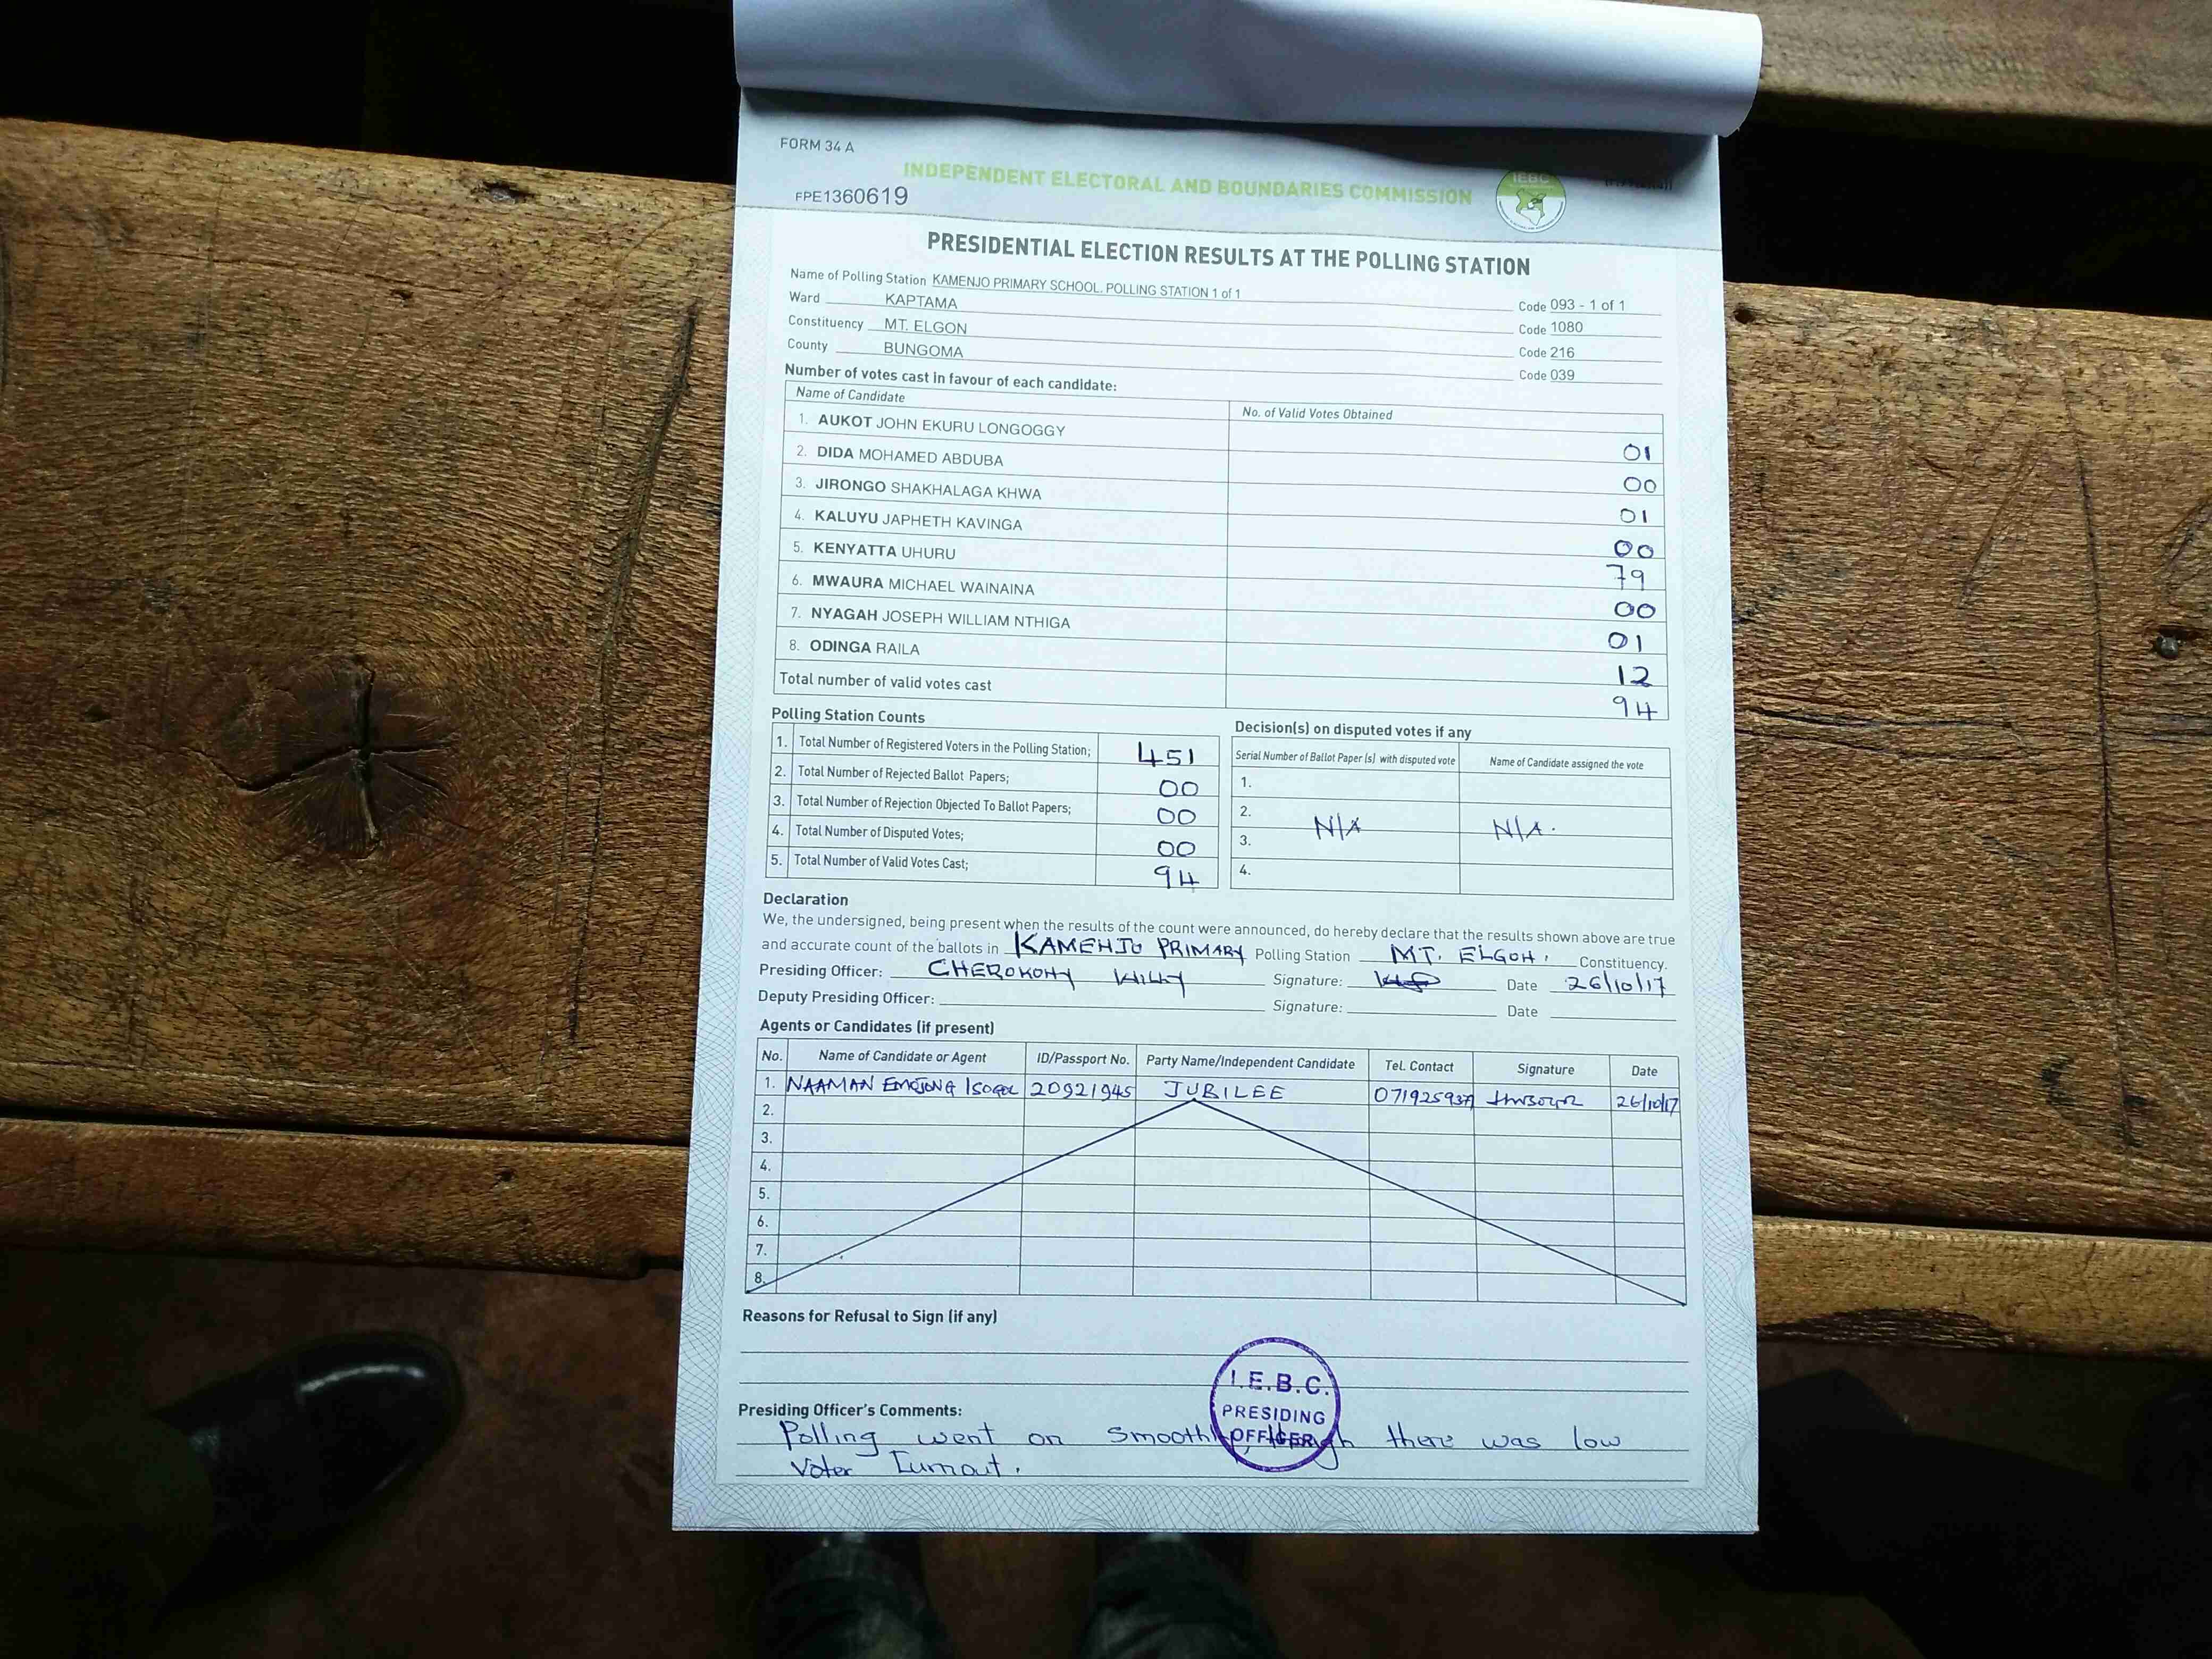 FORM 34 A
INDEPENDENT ELECTORAL AND BOUNDARIES COMMISSION
IEBC
FPE1360619
PRESIDENTIAL ELECTION RESULTS AT THE POLLING STATION
Name of Polling Station KAMENJO PRIMARY SCHOOL. POLLING STATION 1 of 1 Code 093 - 1 of 1
Ward KAPTAMA Code 1080
Constituency MT. ELGON Code 216
County BUNGOMA Code 039
Number of votes cast in favour of each candidate:
Name of Candidate No. of Valid Votes Obtained
1. AUKOT JOHN EKURU LONGOGGY 01
2. DIDA MOHAMED ABDUBA 00
3. JIRONGO SHAKHALAGA KHWA 01
4. KALUYU JAPHETH KAVINGA 00
5. KENYATTA UHURU 79
6. MWAURA MICHAEL WAINAINA 00
7. NYAGAH JOSEPH WILLIAM NTHIGA 01
8. ODINGA RAILA 12
Total number of valid votes cast 94
Polling Station Counts
1. Total Number of Registered Voters in the Polling Station; 451
2. Total Number of Rejected Ballot Papers; 00
3. Total Number of Rejection Objected To Ballot Papers; 00
4. Total Number of Disputed Votes; 00
5. Total Number of Valid Votes Cast; 94
Decision(s) on disputed votes if any
Serial Number of Ballot Paper (s) with disputed vote Name of Candidate assigned the vote
1.
2.
N/A N/A.
3.
4.
Declaration
We, the undersigned, being present when the results of the count were announced, do hereby declare that the results shown above are true
and accurate count of the ballots in KAMENJO PRIMARY Polling Station MT. ELGON. Constituency.
Presiding Officer: CHEROKONY WILLY Signature: Date 26/10/17
Deputy Presiding Officer: Signature: Date
Agents or Candidates (if present)
No. Name of Candidate or Agent ID/Passport No. Party Name/Independent Candidate Tel. Contact Signature Date
1. NAAMAN EMOJONG 20921945 JUBILEE 26/10/17
2.
3.
4.
5.
6.
7.
8.
Reasons for Refusal to Sign (if any)
I.E.B.C.
PRESIDING
OFFICER
Presiding Officer's Comments:
Polling went on smoothly, though there was low
Voter Turnout.